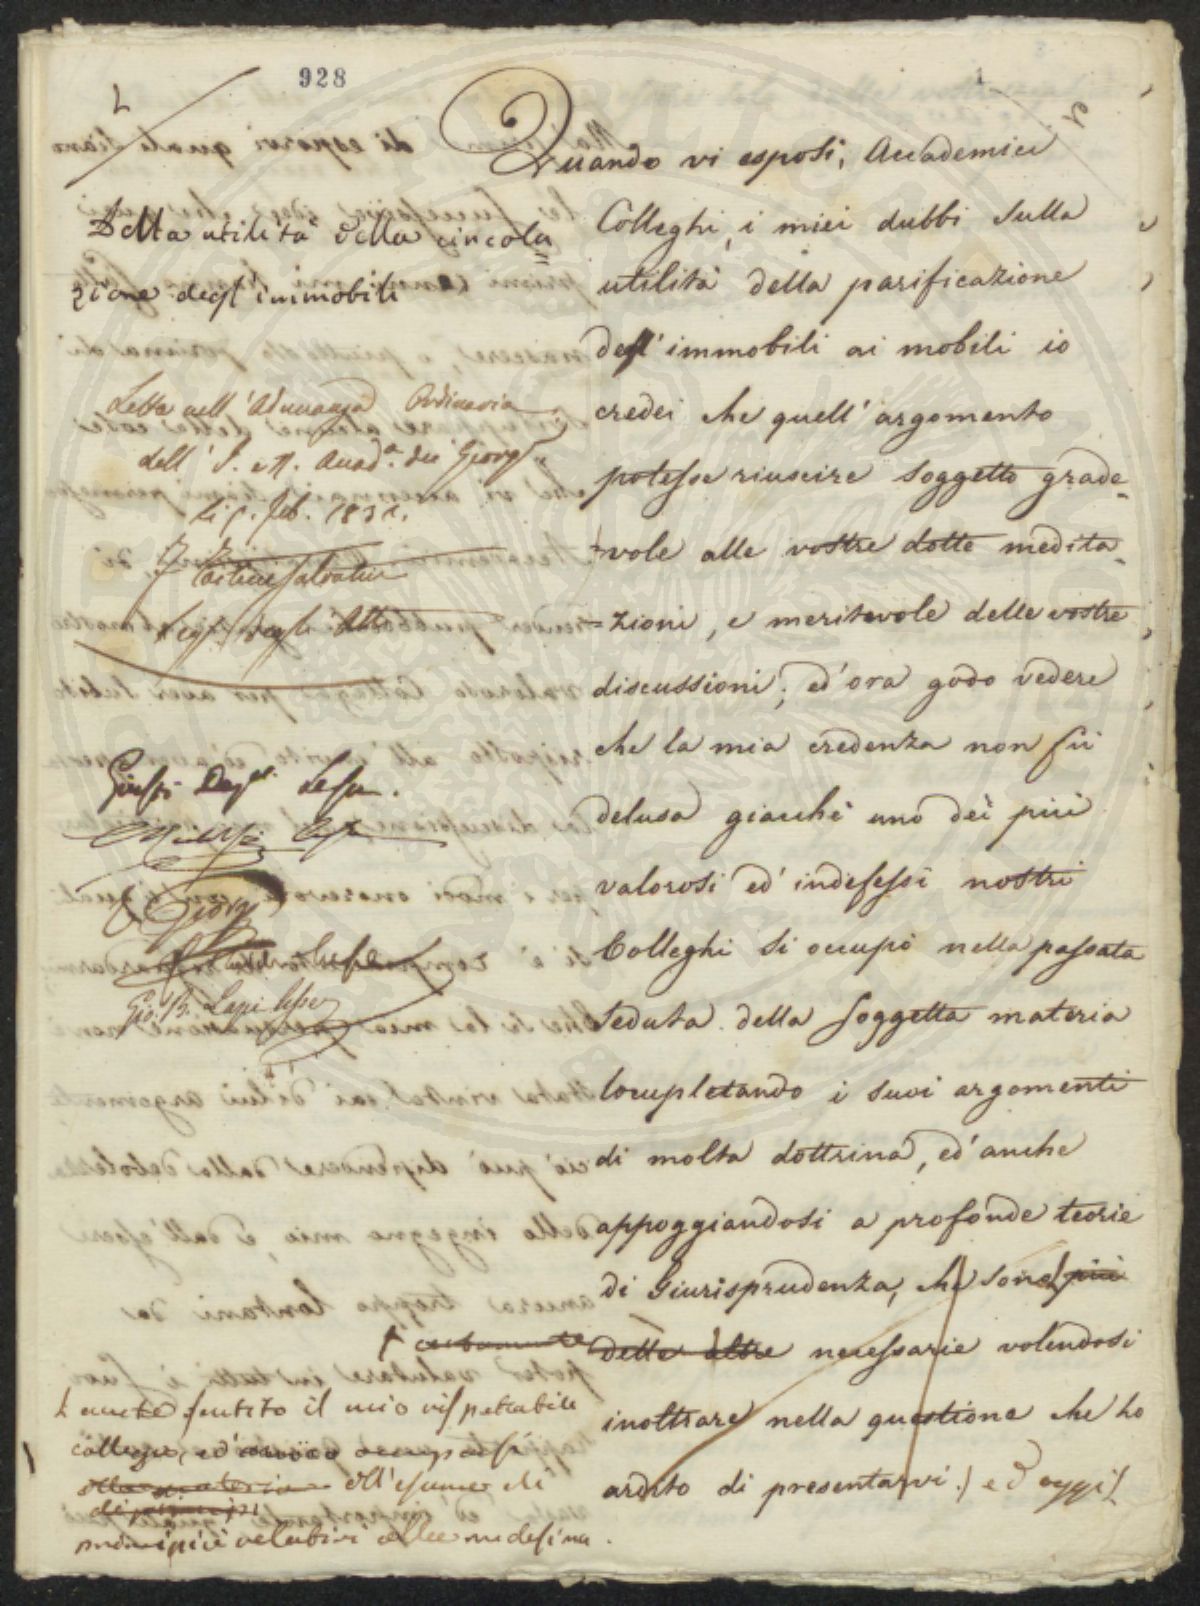 928
1
Della utilità della circola
zione degl'immobili
Letta nell'Adunanza Ordinaria
dell' I. e R. Accad.a dei Georgf.
li Feb. 1832.
Segr. degli Atti
Quando vi esposi, Accademici
Colleghi, i miei dubbi sulla
utilità della parificazione
degl'immobili ai mobili io
credei che quell'argomento
potesse riuscire soggetto grade-
vole alle vostre dotte medita-
zioni, e meritevole delle vostre
discussioni; ed'ora godo vedere
che la mia credenza non fù
delusa giacchè uno dei più
valorosi ed'indefessi nostri
Colleghi si occupò nella passata
seduta della soggetta materia
locupletando i suoi argomenti
di molta dottrina, ed'anche
appoggiandosi a profonde teorie
di Giurisprudenza, che sono più
delle altre necessarie volendosi
inoltrare nella questione che ho
ardito di presentarvi. ed oggi
certamente
sentito il mio rispettabile
collega, ed'
alla materia all'esame di
dei principj
principii relativi alla medesima.